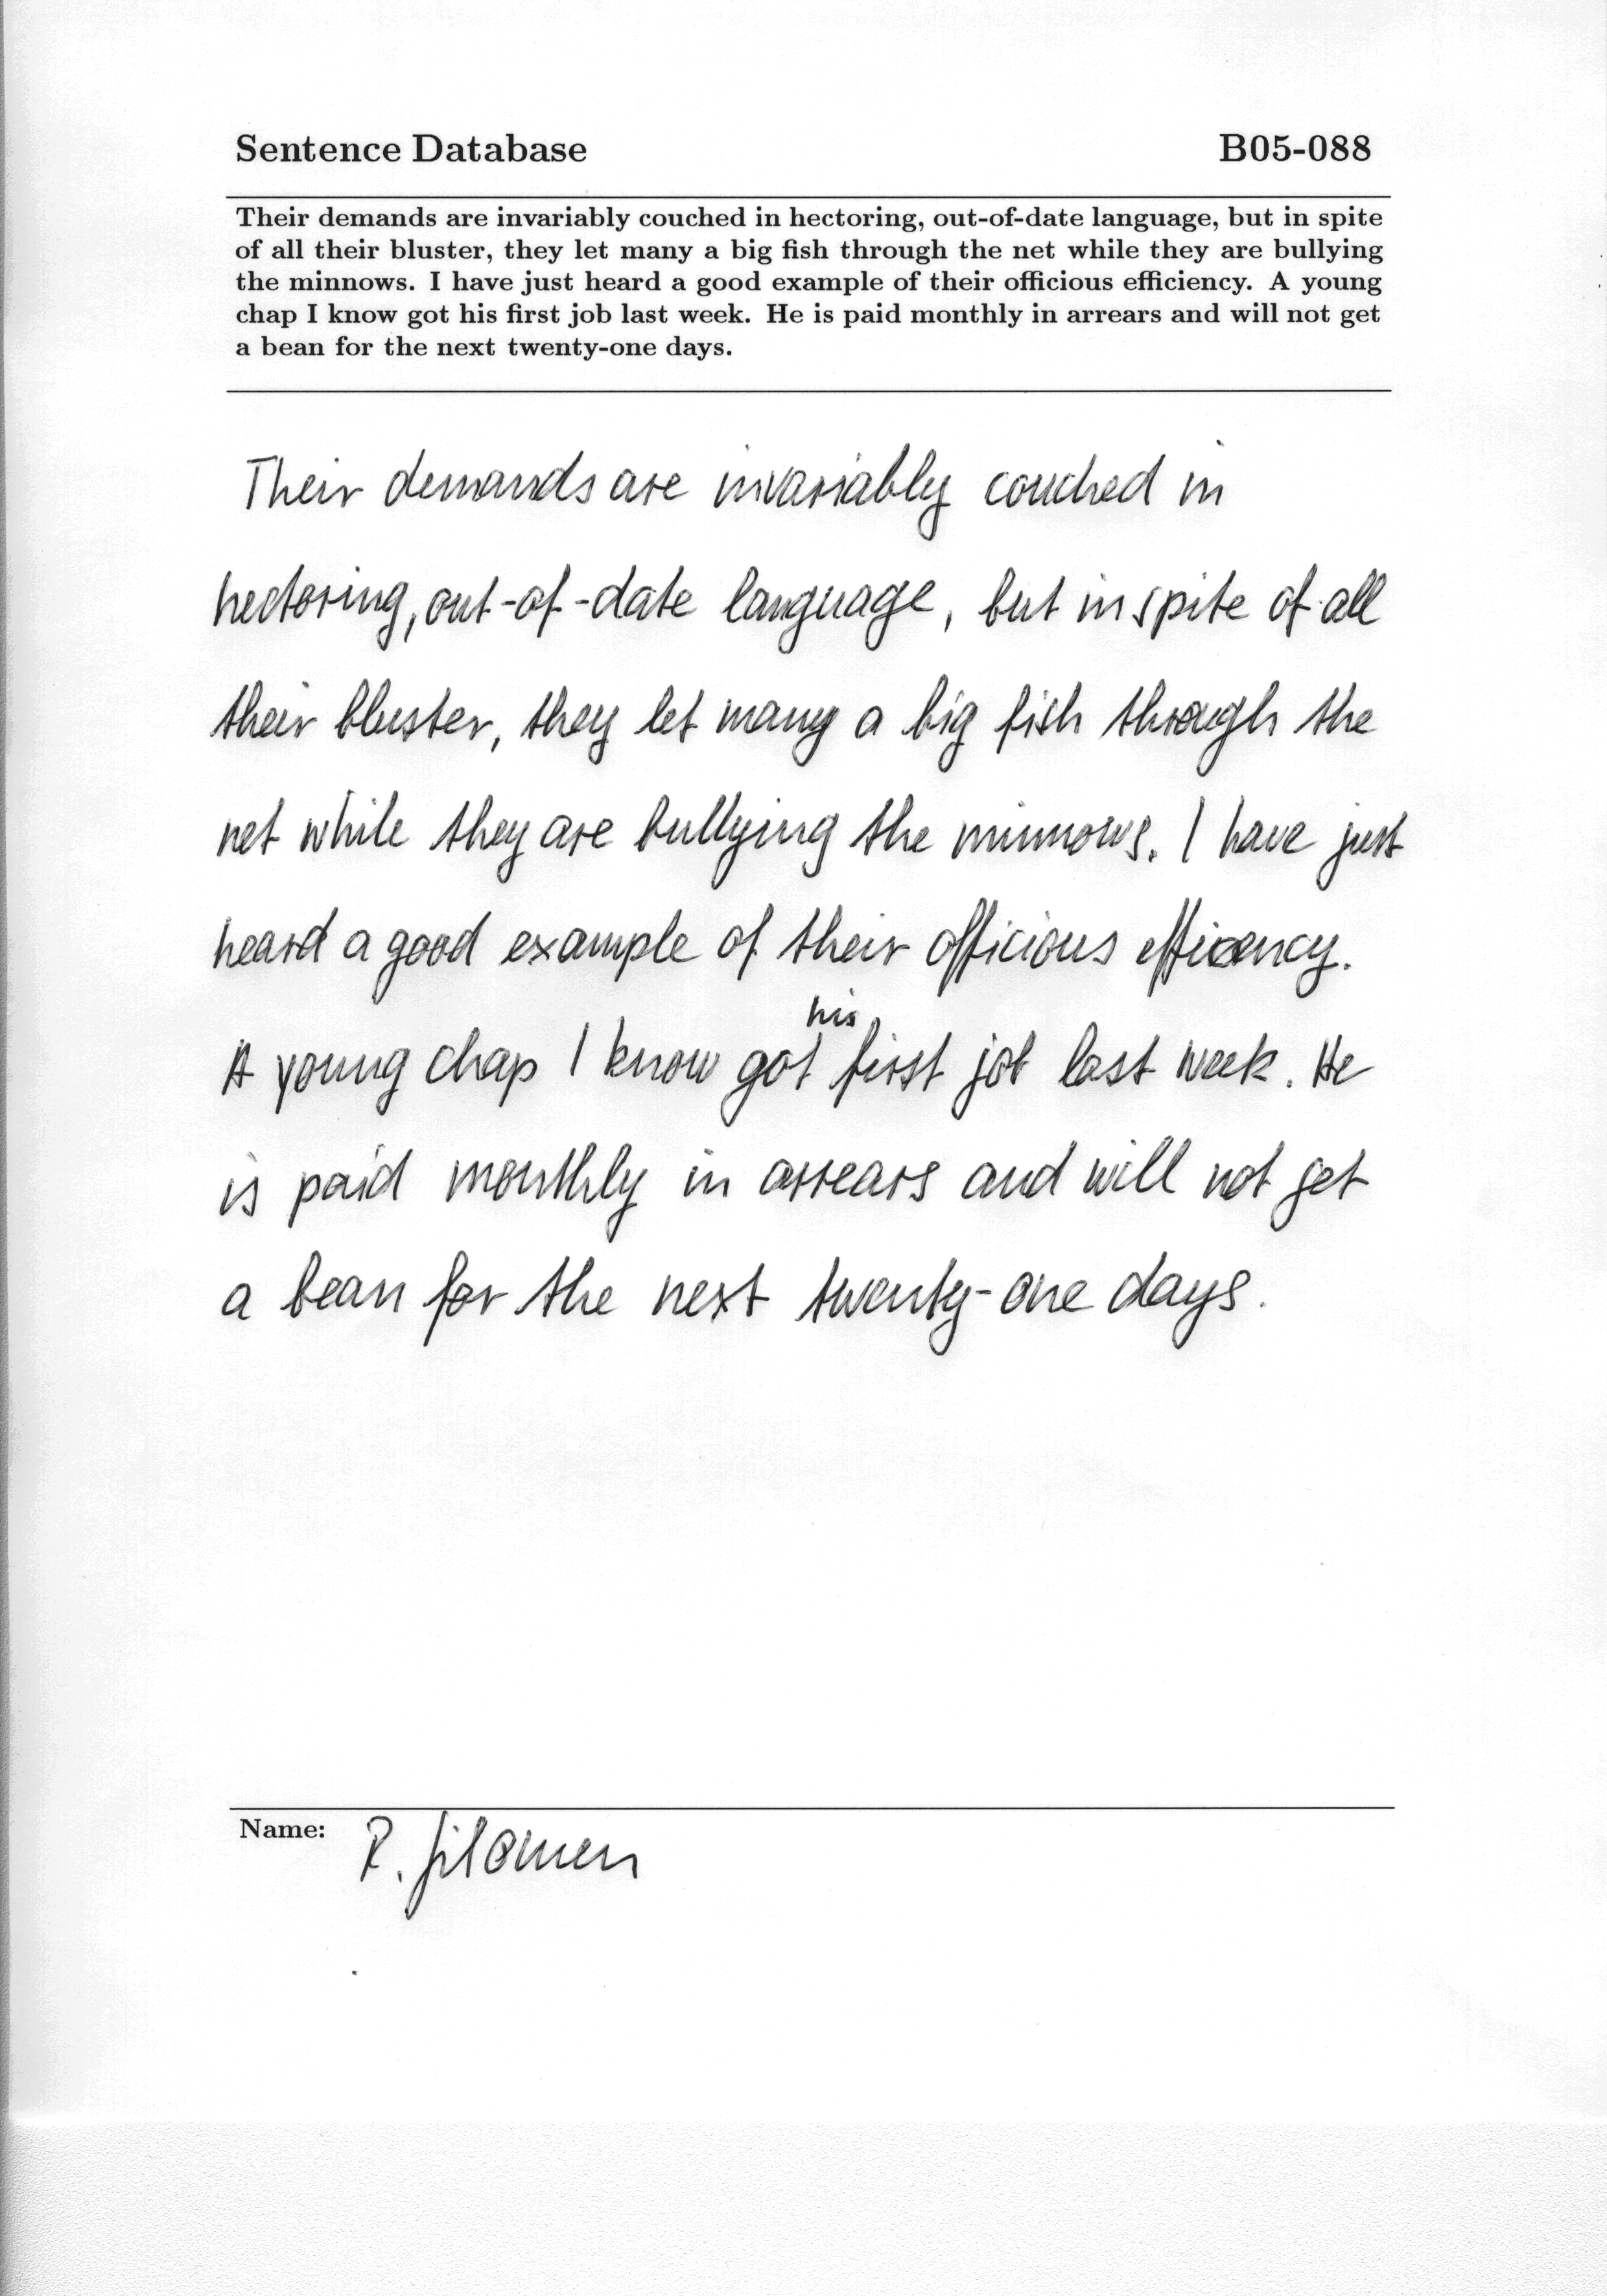 Sentence Database B05-088
Their demands are invariably couched in hectoring, out-of-date language, but in spite
of all their bluster, they let many a big fish through the net while they are bullying
the minnows. I have just heard a good example of their officious efficiency. A young
chap I know got his first job last week. He is paid monthly in arrears and will not get
a bean for the next twenty-one days.
Their demands are invariably couched in
hectoring, out-of-date language, but in spite of all
their bluster, they let many a big fish through the
net while they are bullying the minnows. I have just
heard a good example of their officious efficency.
his
A young chap I know got first job last week. He
is paid monthly in arrears and will not get
a bean for the next twenty-one days.
Name: R.